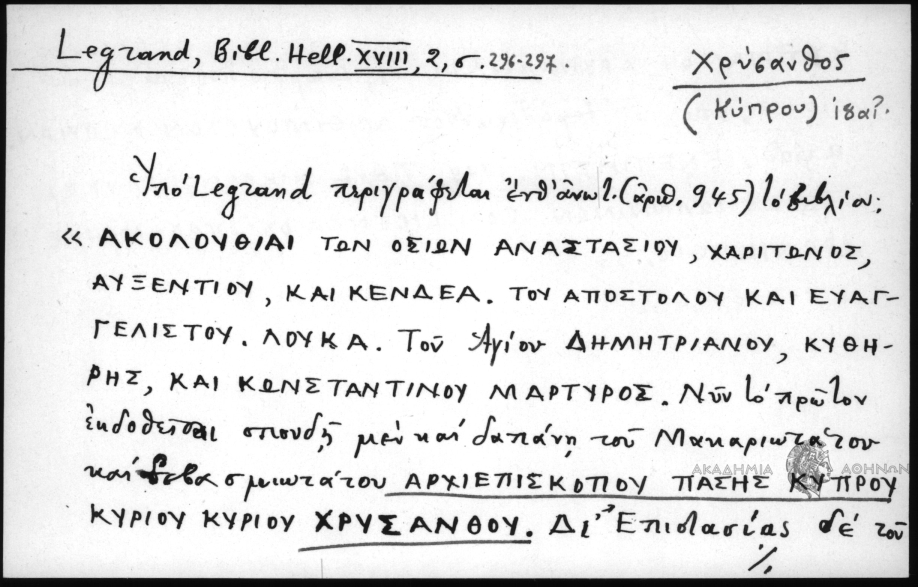 Legrand, Bibl. Hell. XVIII, 2, σ. 296-297.
Χρύσανθος
(Κύπρου) ιη΄ αἰ.
Ὑπό Legrand περιγράφεται ἐνθ' ἀνωτ. (ἀριθ. 945) τό βιβλίον:
« ΑΚΟΛΟΥΘΙΑΙ ΤΩΝ ΟΣΙΩΝ ΑΝΑΣΤΑΣΙΟΥ, ΧΑΡΙΤΩΝΟΣ,
ΑΥΞΕΝΤΙΟΥ, ΚΑΙ ΚΕΝΔΕΑ. ΤΟΥ ΑΠΟΣΤΟΛΟΥ ΚΑΙ ΕΥΑΓ-
ΓΕΛΙΣΤΟΥ. ΛΟΥΚΑ. Τοῦ Ἁγίου ΔΗΜΗΤΡΙΑΝΟΥ, ΚΥΘΗ-
ΡΗΣ, ΚΑΙ ΚΩΝΣΤΑΝΤΙΝΟΥ ΜΑΡΤΥΡΟΣ. Νῦν τό πρῶτον
ἐκδοθεῖσαι σπουδῇ μέν καί δαπάνῃ τοῦ Μακαριωτάτου
καί Σεβασμιωτάτου ΑΡΧΙΕΠΙΣΚΟΠΟΥ ΠΑΣΗΣ ΚΥΠΡΟΥ
ΑΚΑΔΗΜΙΑ ΑΘΗΝΩΝ
ΚΥΡΙΟΥ ΚΥΡΙΟΥ ΧΡΥΣΑΝΘΟΥ. Δι' Ἐπιστασίας δέ τοῦ
./.